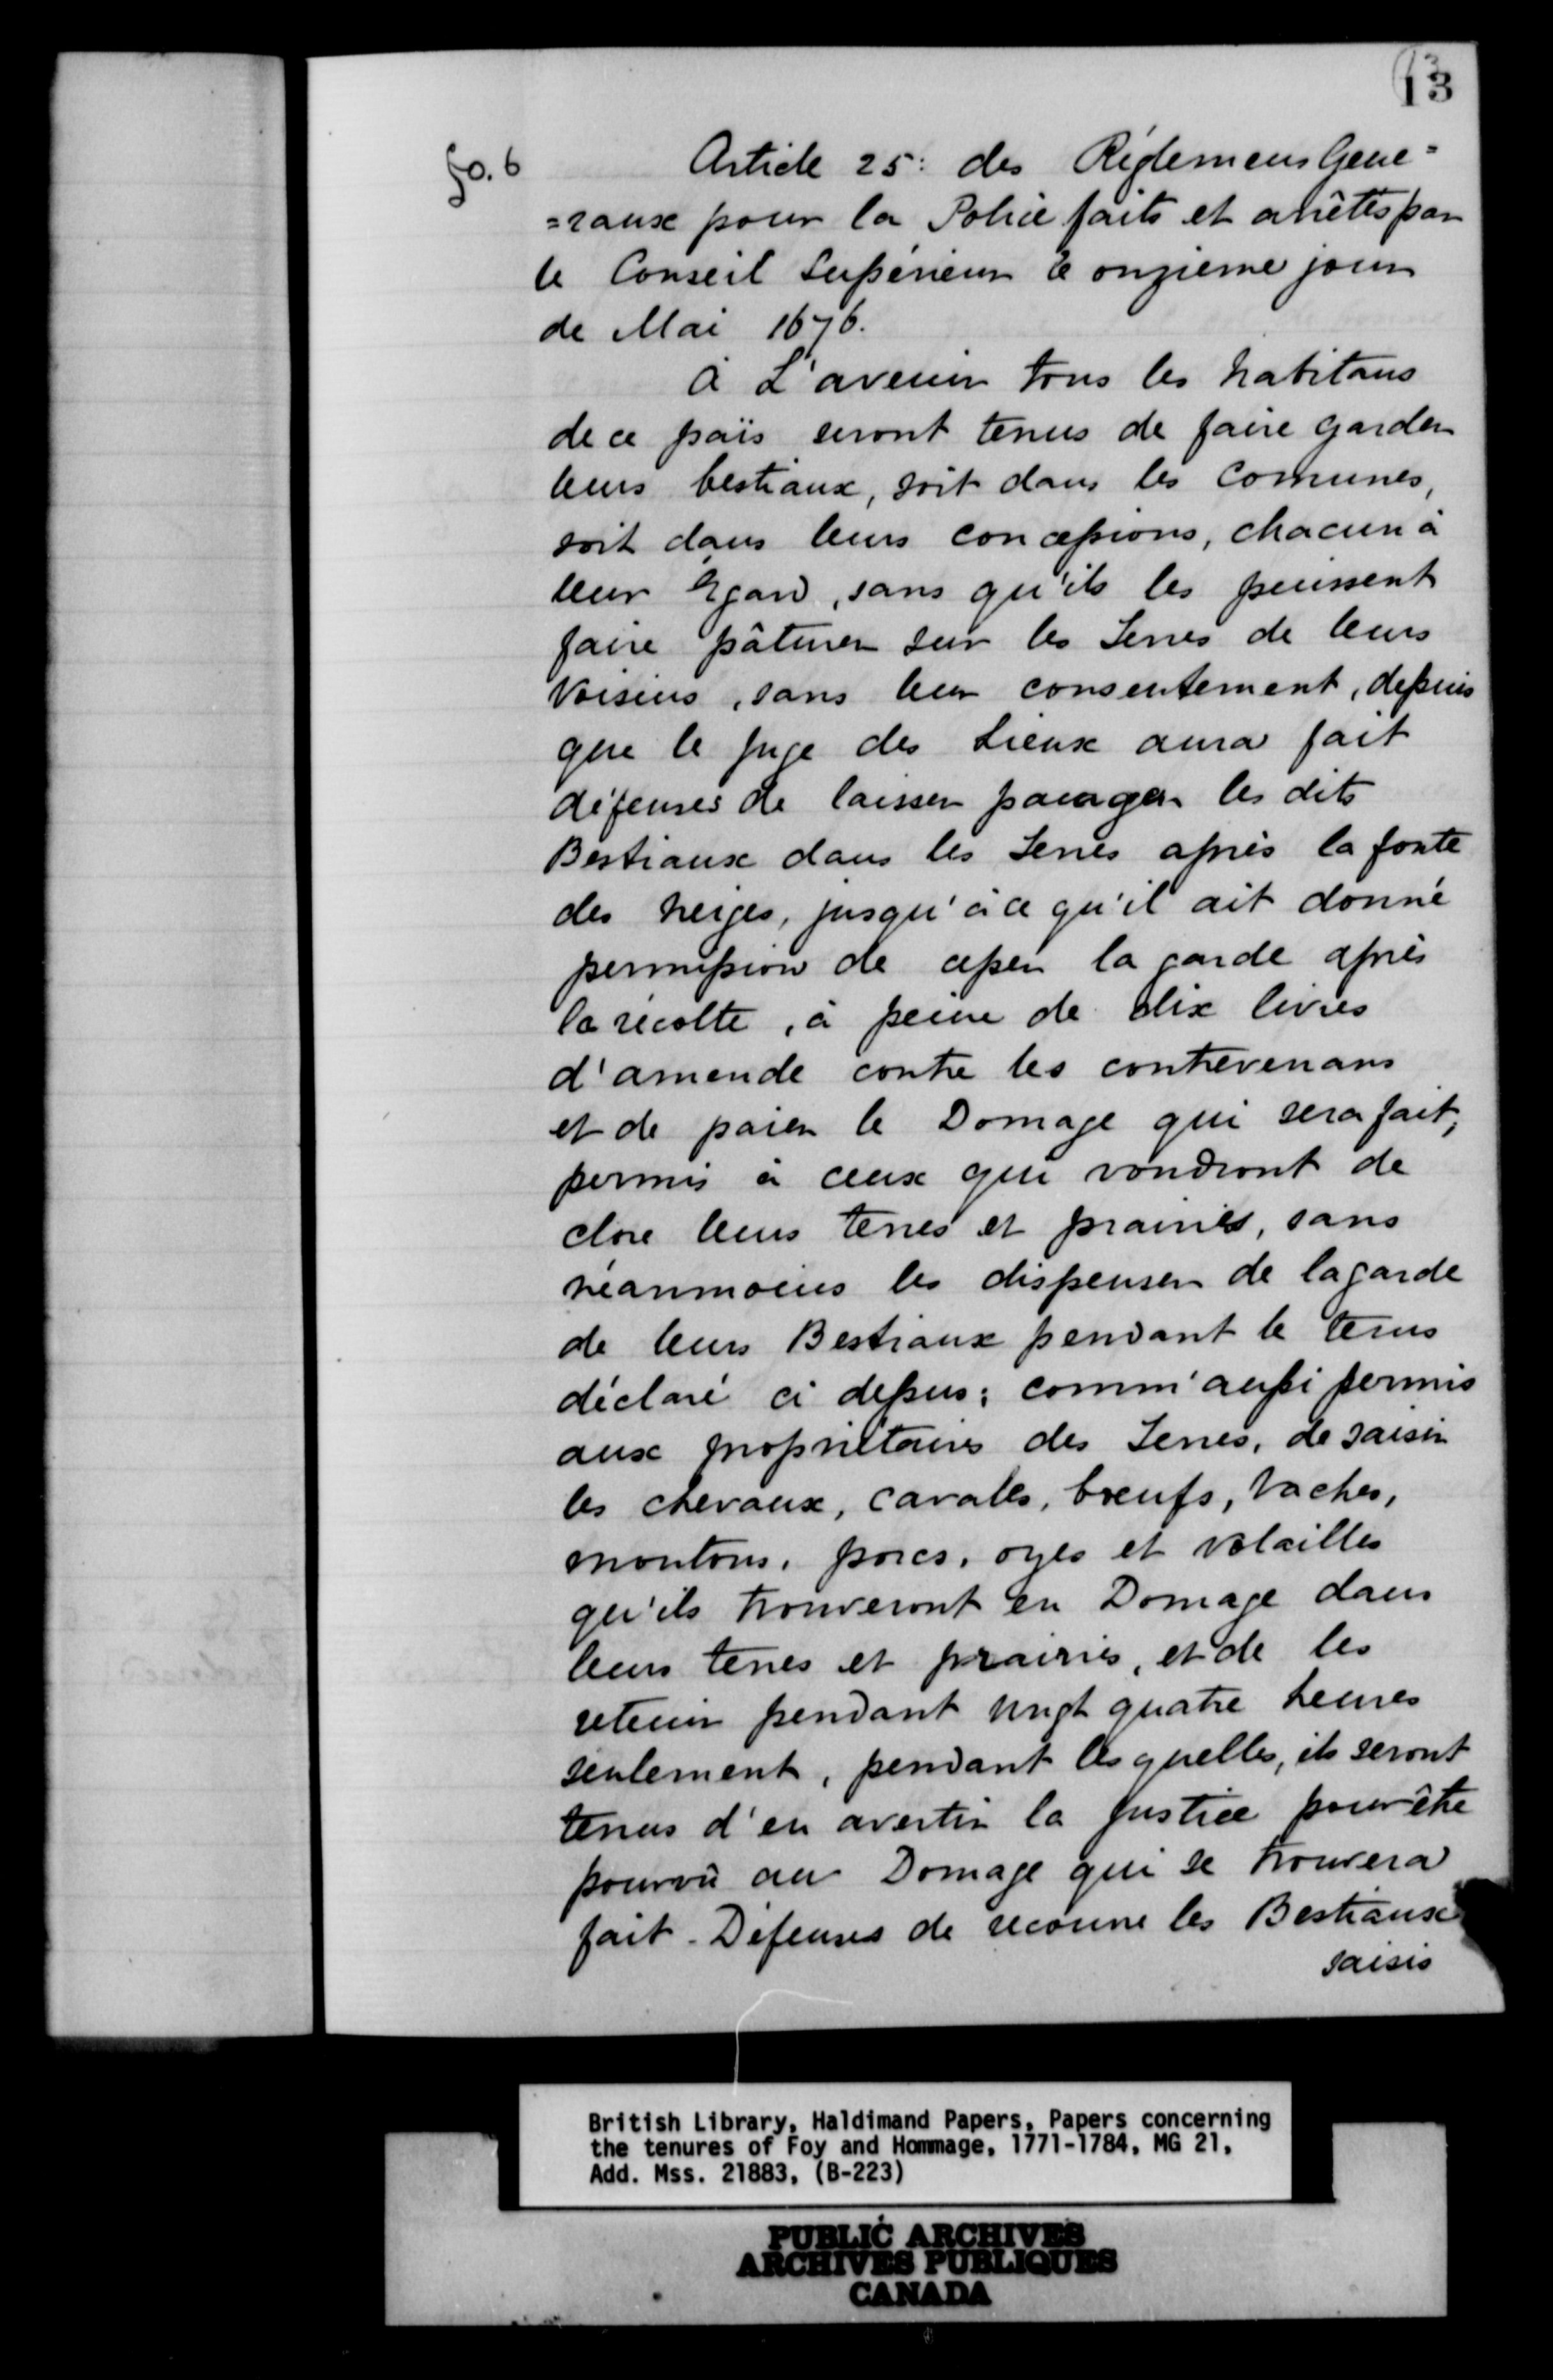 13
fo. 6
Article 25: des Réglemens Gene=
=raux pour la Police faits et arrêtés par
le Conseil Supérieur le onzieme jour
de Mai 1676.
à L'avenir tous les habitans
de ce païs seront tenus de faire garder
leurs bestiaux, soit dans les Comunes,
soit dans leurs concessions, chacun à
leur Egard, sans qu'ils les puissent
faire pâturer sur les Terres de leurs
Voisins, sans leur consentement, depuis
que le Juge des Lieux aura fait
défenses de laisser pacager les dits
Bestiaux dans les Terres après la fonte
des neiges, jusqu'à ce qu'il ait donné
permission de cesser la garde après
la récolte, à peine de dix livres
d'amende contre les contrevenans
et de paier le Domage qui sera fait;
permis à ceux qui voudront de
clore leurs terres et prairies, sans
néanmoins les dispenser de la garde
de leurs Bestiaux pendant le tems
déclaré ci dessus; comm'aussi permis
aux propriétaires des Terres, de saisir
les chevaux, cavales, bœufs, vaches,
moutons, porcs, oyes et volailles
qu'ils trouveront en Domage dans
leurs terres et prairies, et de les
retenir pendant vingt quatre heures
seulement, pendant lesquelles, ils seront
tenus d'en avertir la Justice pour être
pourvû au Domage qui se trouvera
fait. Défenses de recourre les Bestiaux
saisis
British Library, Haldimand Papers, Papers concerning
the tenures of Foy and Hommage, 1771-1784, MG 21,
Add. Mss. 21883, (B-223)
PUBLIC ARCHIVES
ARCHIVES PUBLIQUES
CANADA